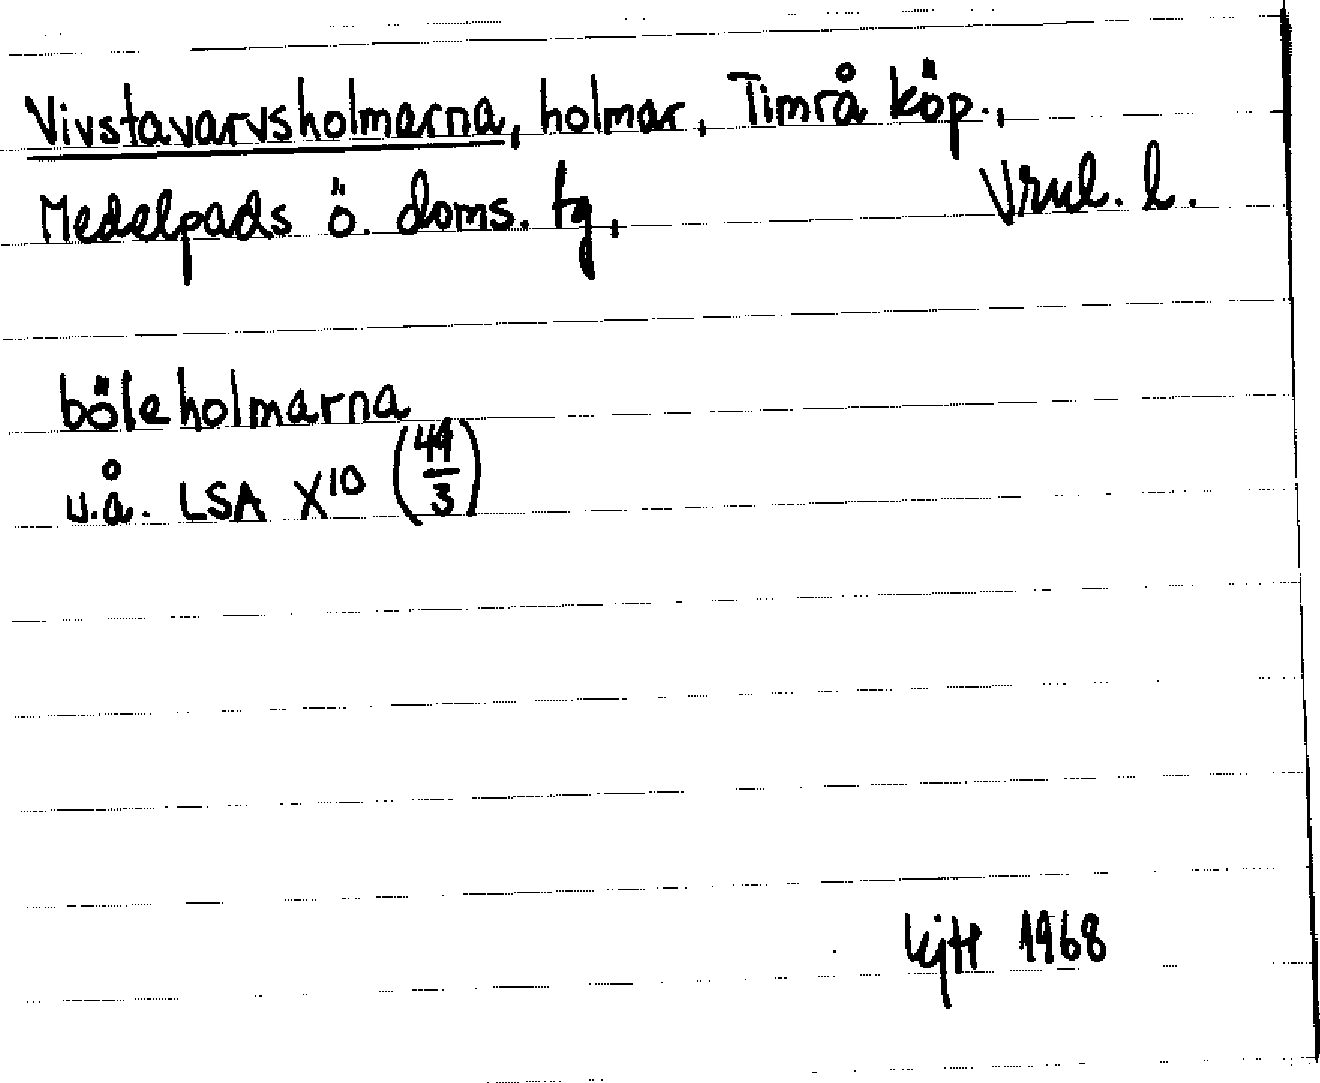 Vivstavarvsholmarna, holmar, Timrå köp.,
Medelpads ö. doms. tg, Vrnl. l.
böleholmarna
u.å. LSA X¹⁰ (49/3)
1968